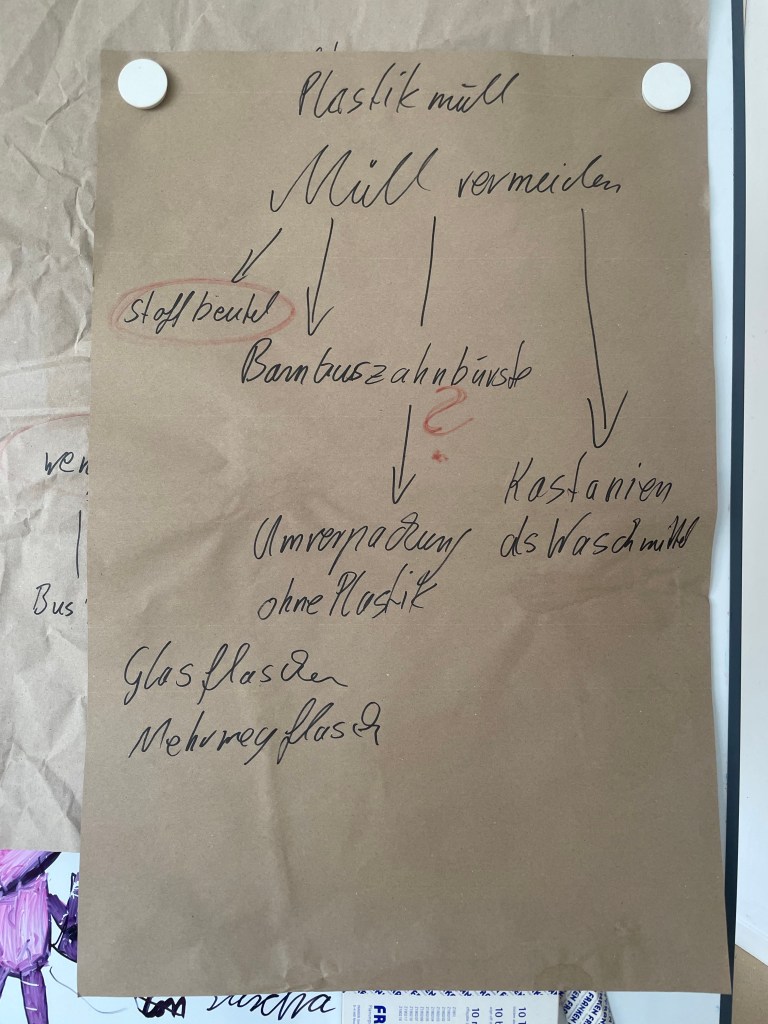 Plastikmüll
Müll vermeiden
Stoffbeutel
Bambuszahnbürste
?
Kastanien
als Waschmittel
Umverpackung
ohne Plastik
Glasflaschen
Mehrwegflasch
wer
Bus
10
10
FRANKEN